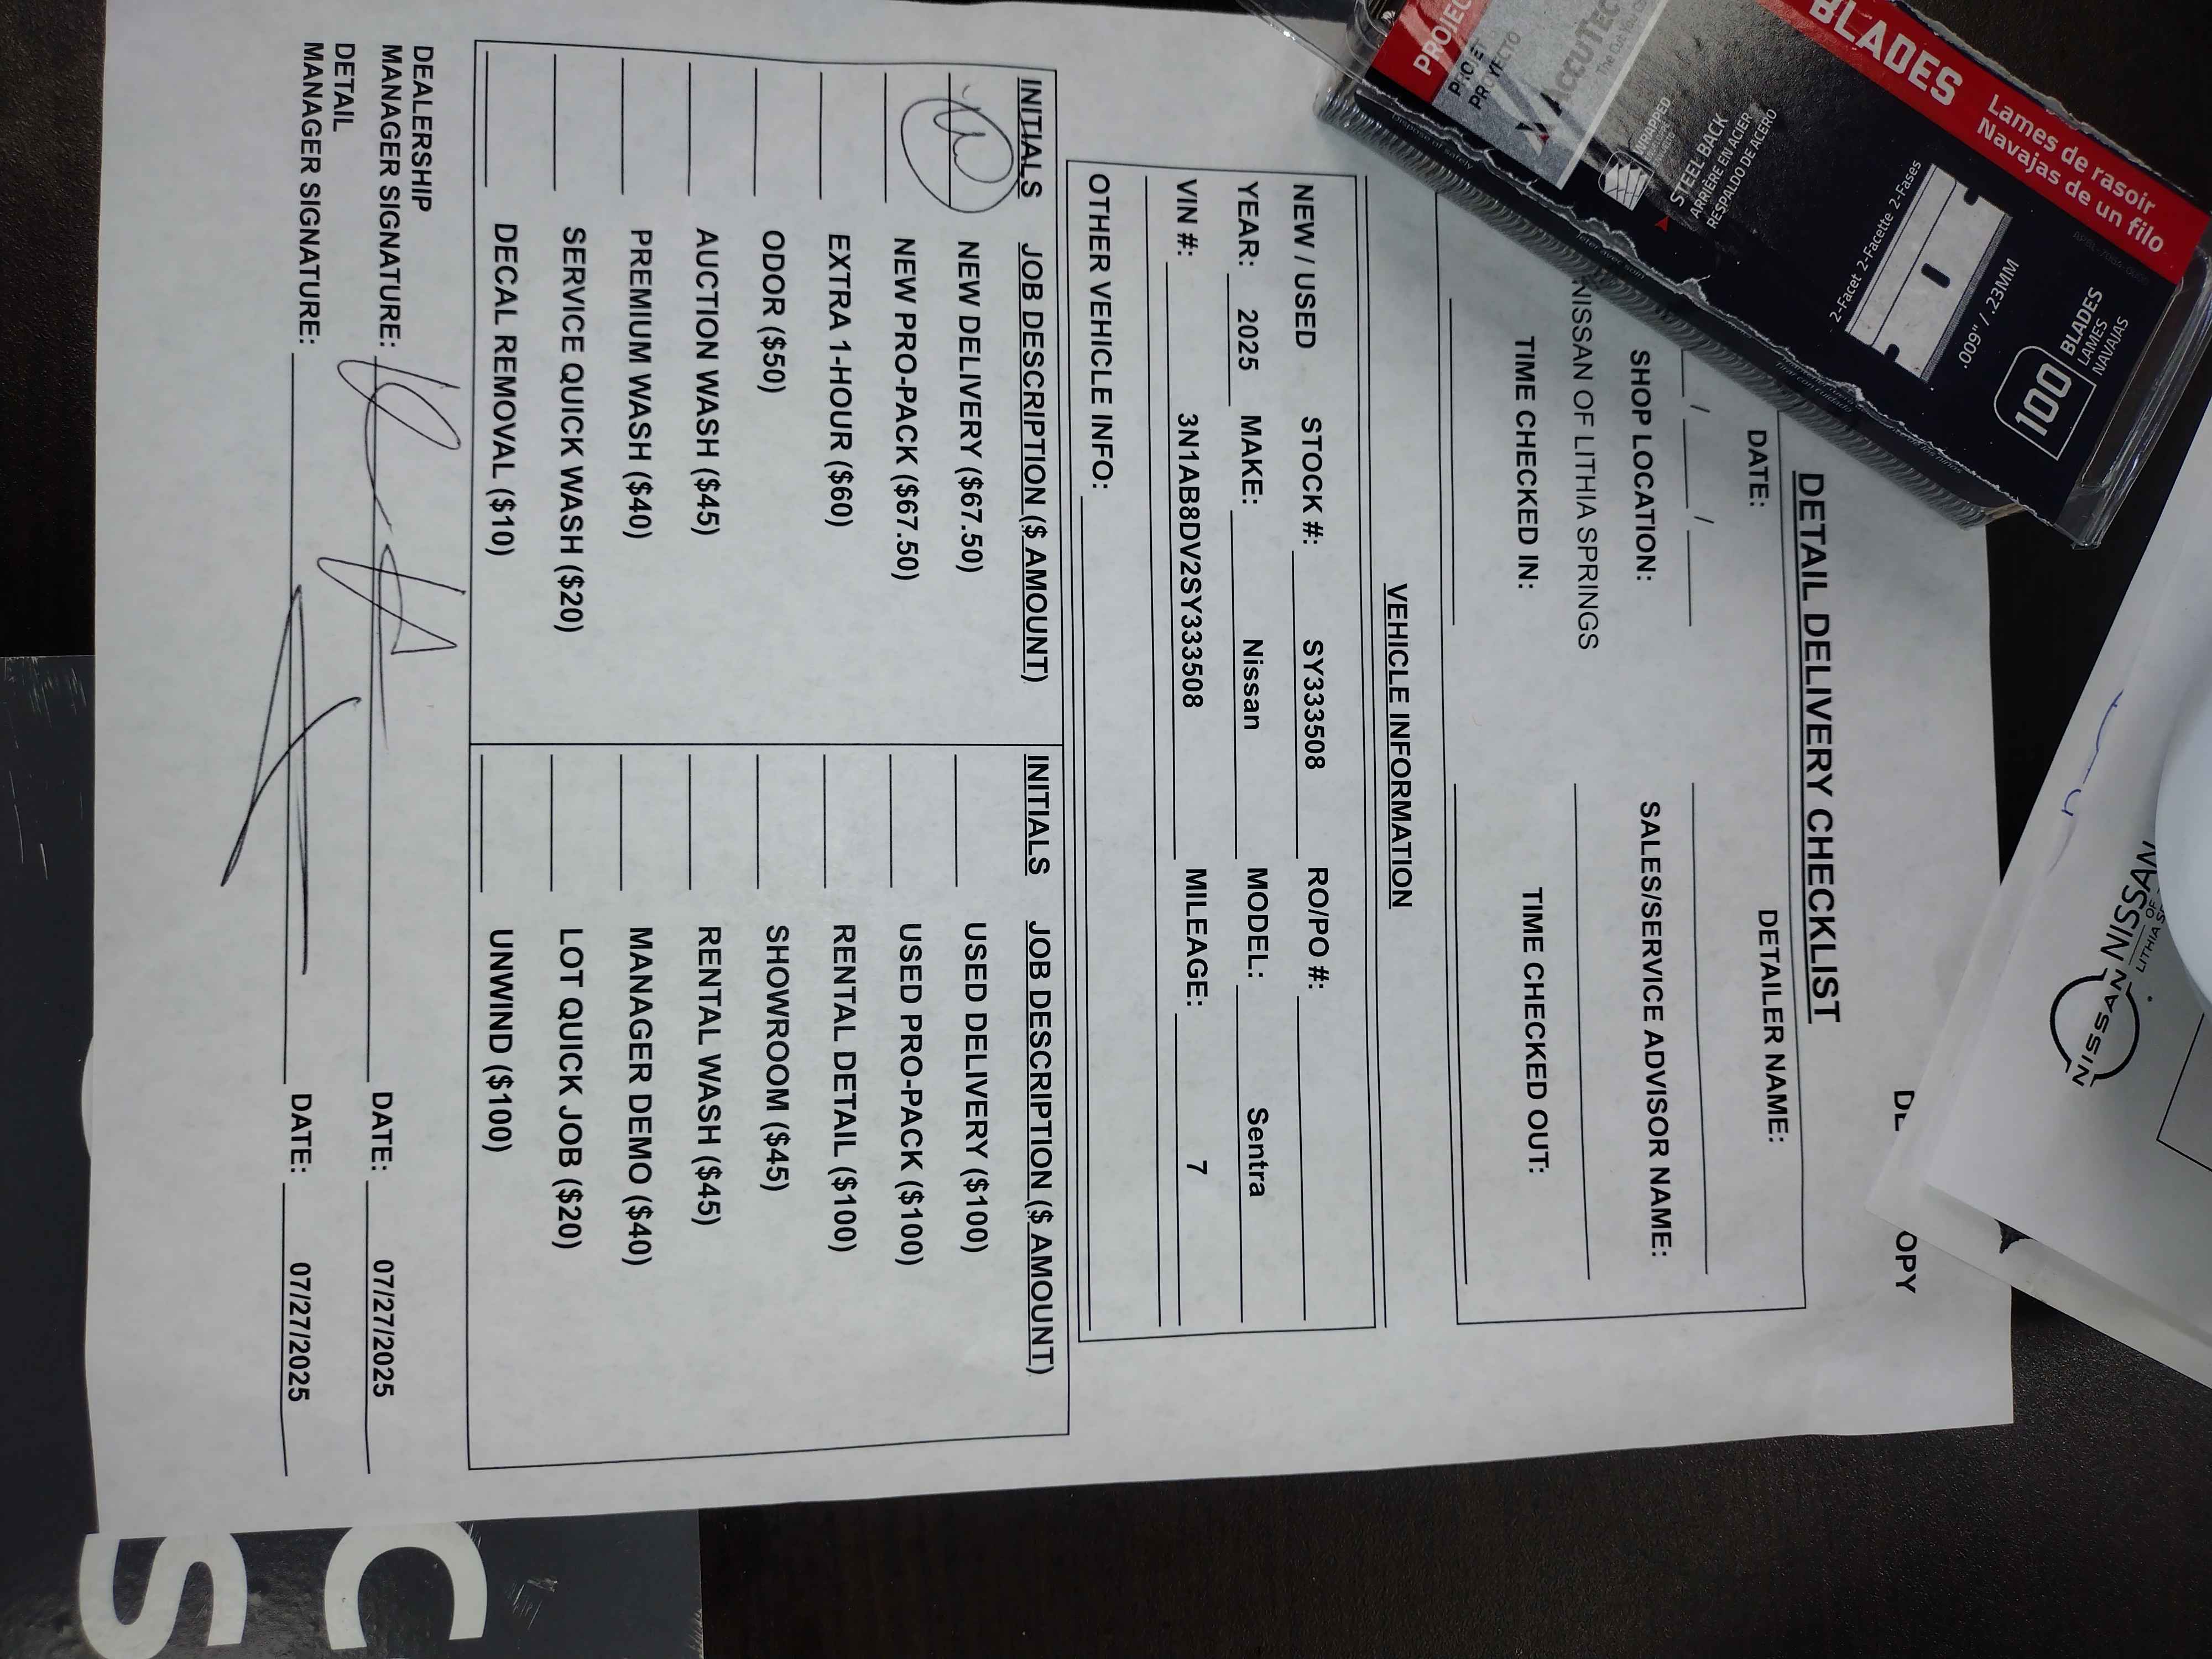 DETAIL DELIVERY CHECKLIST
DATE: DETAILER NAME:
/ /
SHOP LOCATION: SALES/SERVICE ADVISOR NAME:
NISSAN OF LITHIA SPRINGS
TIME CHECKED IN: TIME CHECKED OUT:
VEHICLE INFORMATION
NEW / USED STOCK #: SY333508 RO/PO #:
YEAR: 2025 MAKE: Nissan MODEL: Sentra
VIN #: 3N1AB8DV2SY333508 MILEAGE: 7
OTHER VEHICLE INFO:
INITIALS JOB DESCRIPTION ($ AMOUNT) INITIALS JOB DESCRIPTION ($ AMOUNT)
NEW DELIVERY ($67.50) USED DELIVERY ($100)
NEW PRO-PACK ($67.50) USED PRO-PACK ($100)
EXTRA 1-HOUR ($60) RENTAL DETAIL ($100)
ODOR ($50) SHOWROOM ($45)
AUCTION WASH ($45) RENTAL WASH ($45)
PREMIUM WASH ($40) MANAGER DEMO ($40)
SERVICE QUICK WASH ($20) LOT QUICK JOB ($20)
DECAL REMOVAL ($10) UNWIND ($100)
DEALERSHIP
MANAGER SIGNATURE: DATE: 07/27/2025
DETAIL
MANAGER SIGNATURE: DATE: 07/27/2025
BLADES
Lames de rasoir
Navajas de un filo
PROYECTO
ACCUTEC
WRAPPED
STEEL BACK
ARRIÈRE EN ACIER
RESPALDO DE ACERO
2-Facet 2-Facette 2-Fases
.009" / .23MM
100 BLADES
LAMES
NAVAJAS
NISSAN
C
S